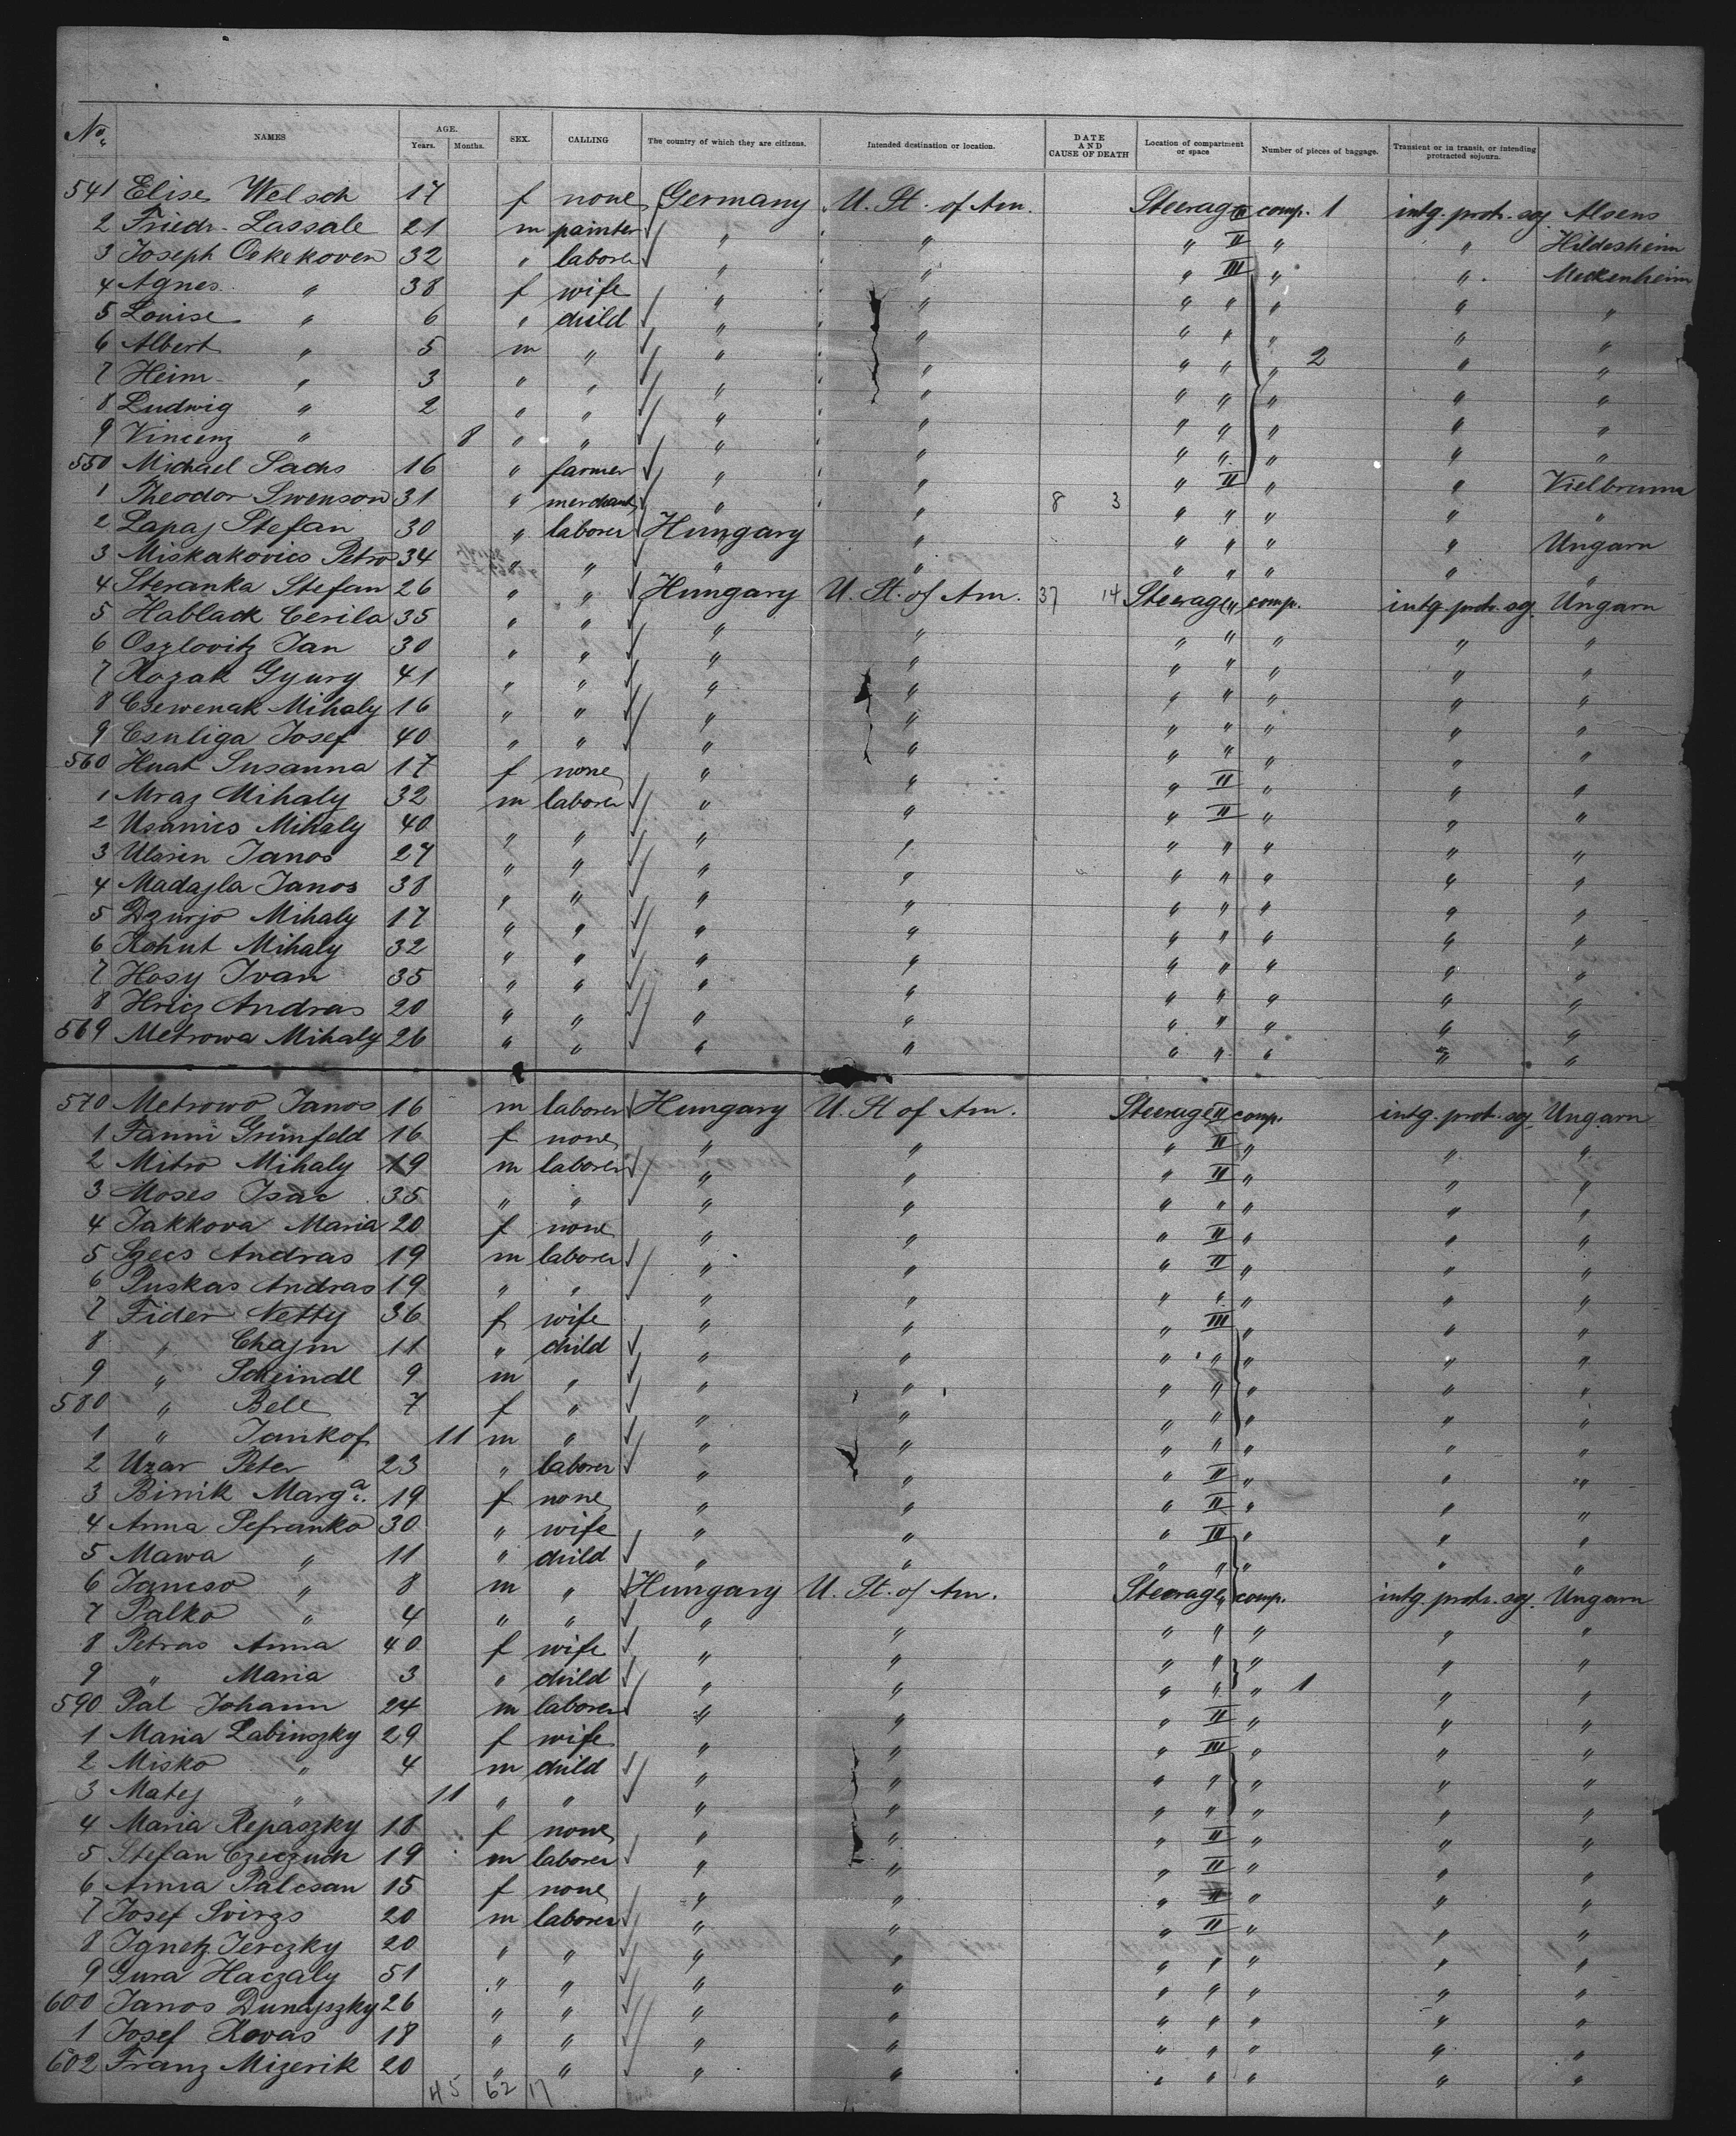 No. NAMES AGE. Years. Months. SEX. CALLING The country of which they are citizens. Intended destination or location. DATE AND CAUSE OF DEATH Location of compartment or space Number of pieces of baggage. Transient or in transit, or intending protracted sojourn.
541 Elise Welsch 17 f none Germany U. St. of Am. Steerage II comp. 1 intg. protr. soj. Alsens
2 Friedr. Lassale 21 m painter " " " II " " Hildesheim
3 Joseph Oekekoven 32 " laborer " " " III " " Meckenheim
4 Agnes " 38 f wife " " " " " " "
5 Louise " 6 " child " " " " " " "
6 Albert " 5 m " " " " " " 2 " "
7 Heinr. " 3 " " " " " " " " "
8 Ludwig " 2 " " " " " " " " "
9 Vincenz " 8 " " " " " " " " "
550 Michael Sachs 16 " farmer " " " II " " Vielbrunn
1 Theodor Swenson 31 " merchant " " 8 3 " " " " "
2 Lapaj Stefan 30 " laborer Hungary " " " " " Ungarn
3 Miskakovics Petro 34 " " " " " " " " "
4 Steranka Stefan 26 " " Hungary U. St. of Am. 37 14 Steerage " comp. intg. protr. soj. Ungarn
5 Hablack Cerila 35 " " " " " " " " "
6 Oszlovitz Jan 30 " " " " " " " " "
7 Kozak Gyurg 41 " " " " " " " " "
8 Csewenak Mihaly 16 " " " " " " " " "
9 Csuliga Josef 40 " " " " " " " " "
560 Huat Susanna 17 f none " " " II " " "
1 Mraz Mihaly 32 m laborer " " " II " " "
2 Usanics Mihaly 40 " " " " " " " " "
3 Janos 27 " " " " " " " " "
4 Madajla Janos 38 " " " " " " " " "
5 Dzurjo Mihaly 17 " " " " " " " " "
6 Kohut Mihaly 32 " " " " " " " " "
7 Hosy Ivan 35 " " " " " " " " "
8 Hricz Andras 20 " " " " " " " " "
569 Metrowa Mihaly 26 " " " " " " " " "
570 Metrowo Janos 16 m laborer Hungary U. St of Am. Steerage II comp. intg. protr. soj. Ungarn
1 Fanni Grünfeld 16 f none " " " II " " "
2 Mitro Mihaly 19 m laborer " " " II " " "
3 Moses Isac 35 " " " " " " " " "
4 Jakkova Maria 20 f none " " " II " " "
5 Szecs Andras 19 m laborer " " " II " " "
6 Puskas Andras 19 " " " " " " " " "
7 Fider Netty 36 f wife " " " III " " "
8 " Chajm 11 " child " " " " " " "
9 " Scheindl 9 m " " " " " " " "
580 " Bell 7 f " " " " " " " "
1 " Jankof 11 m " " " " " " " "
2 Uzar Peter 23 " laborer " " " II " " "
3 Binik Marg.a 19 f none " " " II " " "
4 Anna Sefranko 30 " wife " " " III " " "
5 Mawa " 11 " child " " " " " " "
6 Jancso " 8 m " Hungary U. St. of Am. Steerage " comp. intg. protr. soj. Ungarn
7 Palko " 4 " " " " " " " " "
8 Petras Anna 40 f wife " " " " " " "
9 " Maria 3 " child " " " " " 1 " "
590 Pal Johann 24 m laborer " " " II " " "
1 Maria Labinszky 29 f wife " " " III " " "
2 Misko " 4 m child " " " " " " "
3 Matej " 11 " " " " " " " " "
4 Maria Repaszky 18 f none " " " II " " "
5 Stefan Czeczuch 19 m laborer " " " II " " "
6 Anna Palcsan 15 f none " " " II " " "
7 Josef Svirzs 20 m laborer " " " II " " "
8 Ignetz Jerczky 20 " " " " " " " " "
9 Gura Haczaly 51 " " " " " " " " "
600 Janos Dunajszky 26 " " " " " " " " "
1 Josef Kovas 18 " " " " " " " " "
602 Franz Mizerik 20 " " " " " " " " "
45 62 17